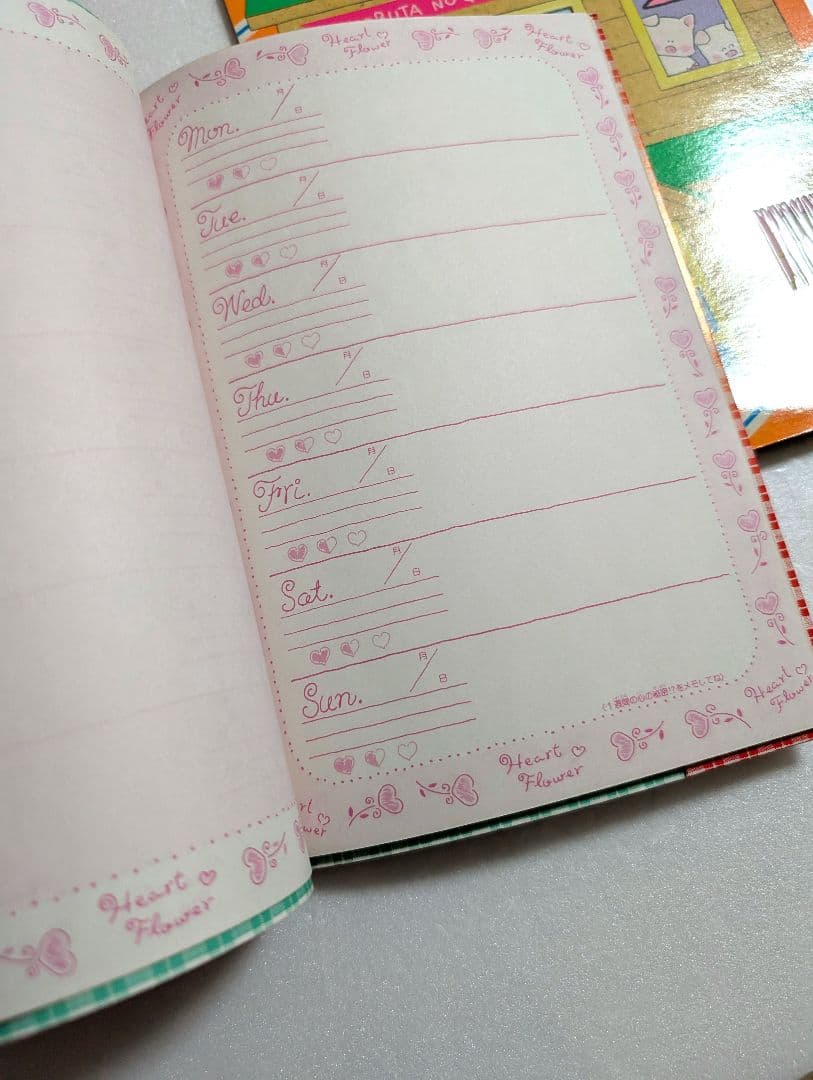 BUTA NO
Heart
Flower
Heart
Flower
Heart
Flower
Mon.
月／日
Tue.
月／日
Wed.
月／日
Thu.
月／日
Fri.
月／日
Sat.
月／日
Sun.
月／日
Heart
Flower
Heart
Flower
Heart
Flower